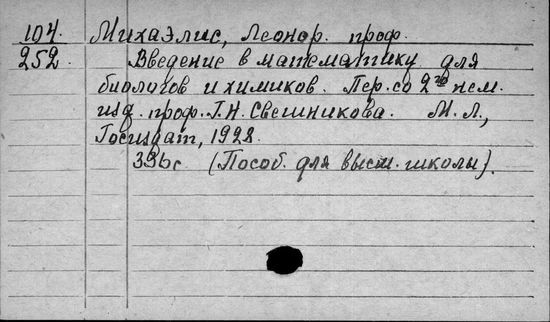 104. Михаэлис, Леонор. проф.
252. Введение в математику для
биологов и химиков. Пер. со 2го нем.
изд. проф. Г.Н. Свешникова. М.Л.,
Госиздат, 1928.
336с. (Пособ. для высш. школы).